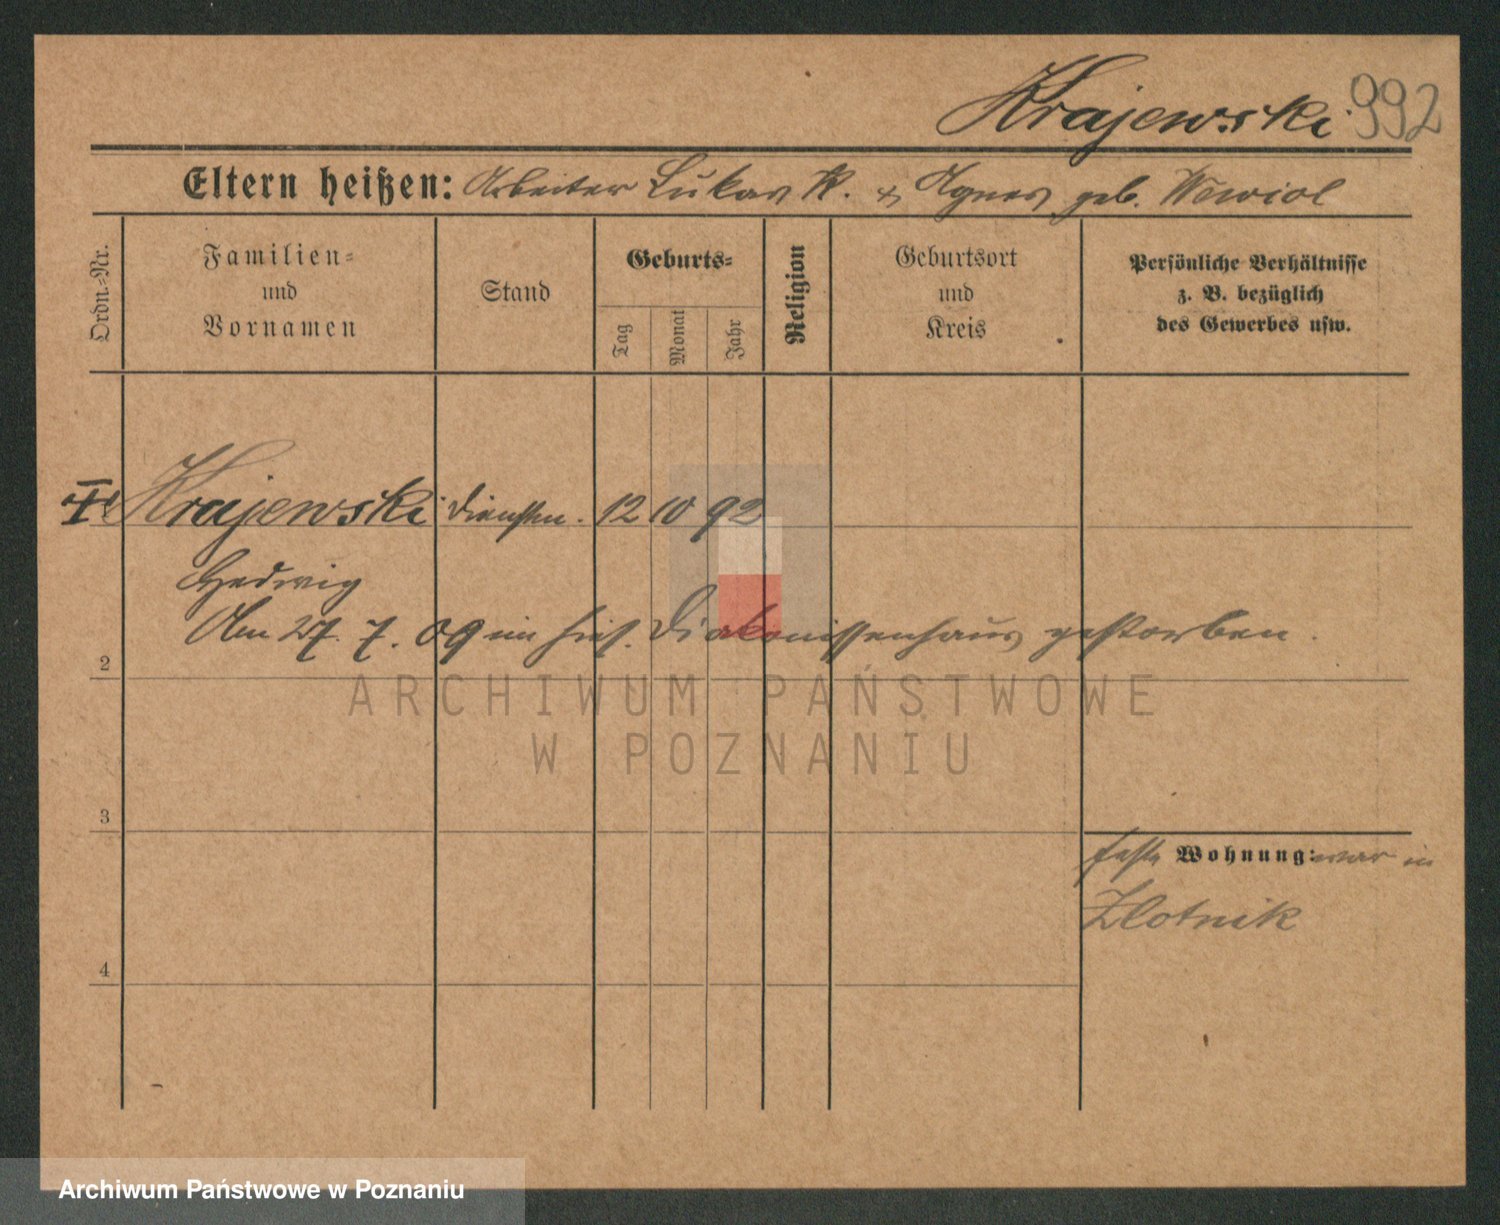 Krajewski 992
Eltern heißen: Arbeiter Lukas K. & Agnes geb. Wawiol
Ordn.-Nr.
Familien-
und
Vornamen
Stand
Geburts-
Tag
Monat
Jahr
Religion
Geburtsort
und
Kreis
Persönliche Verhältnisse
z. B. bezüglich
des Gewerbes usw.
Krajewski Dienstm. 12 10 92
Hedwig
Am 27. 7. 09 im hies. Diakonissenhaus gestorben.
2
ARCHIWUM PAŃSTWOWE
W POZNANIU
3
feste Wohnung: war in
Zlotnik
4
Archiwum Państwowe w Poznaniu